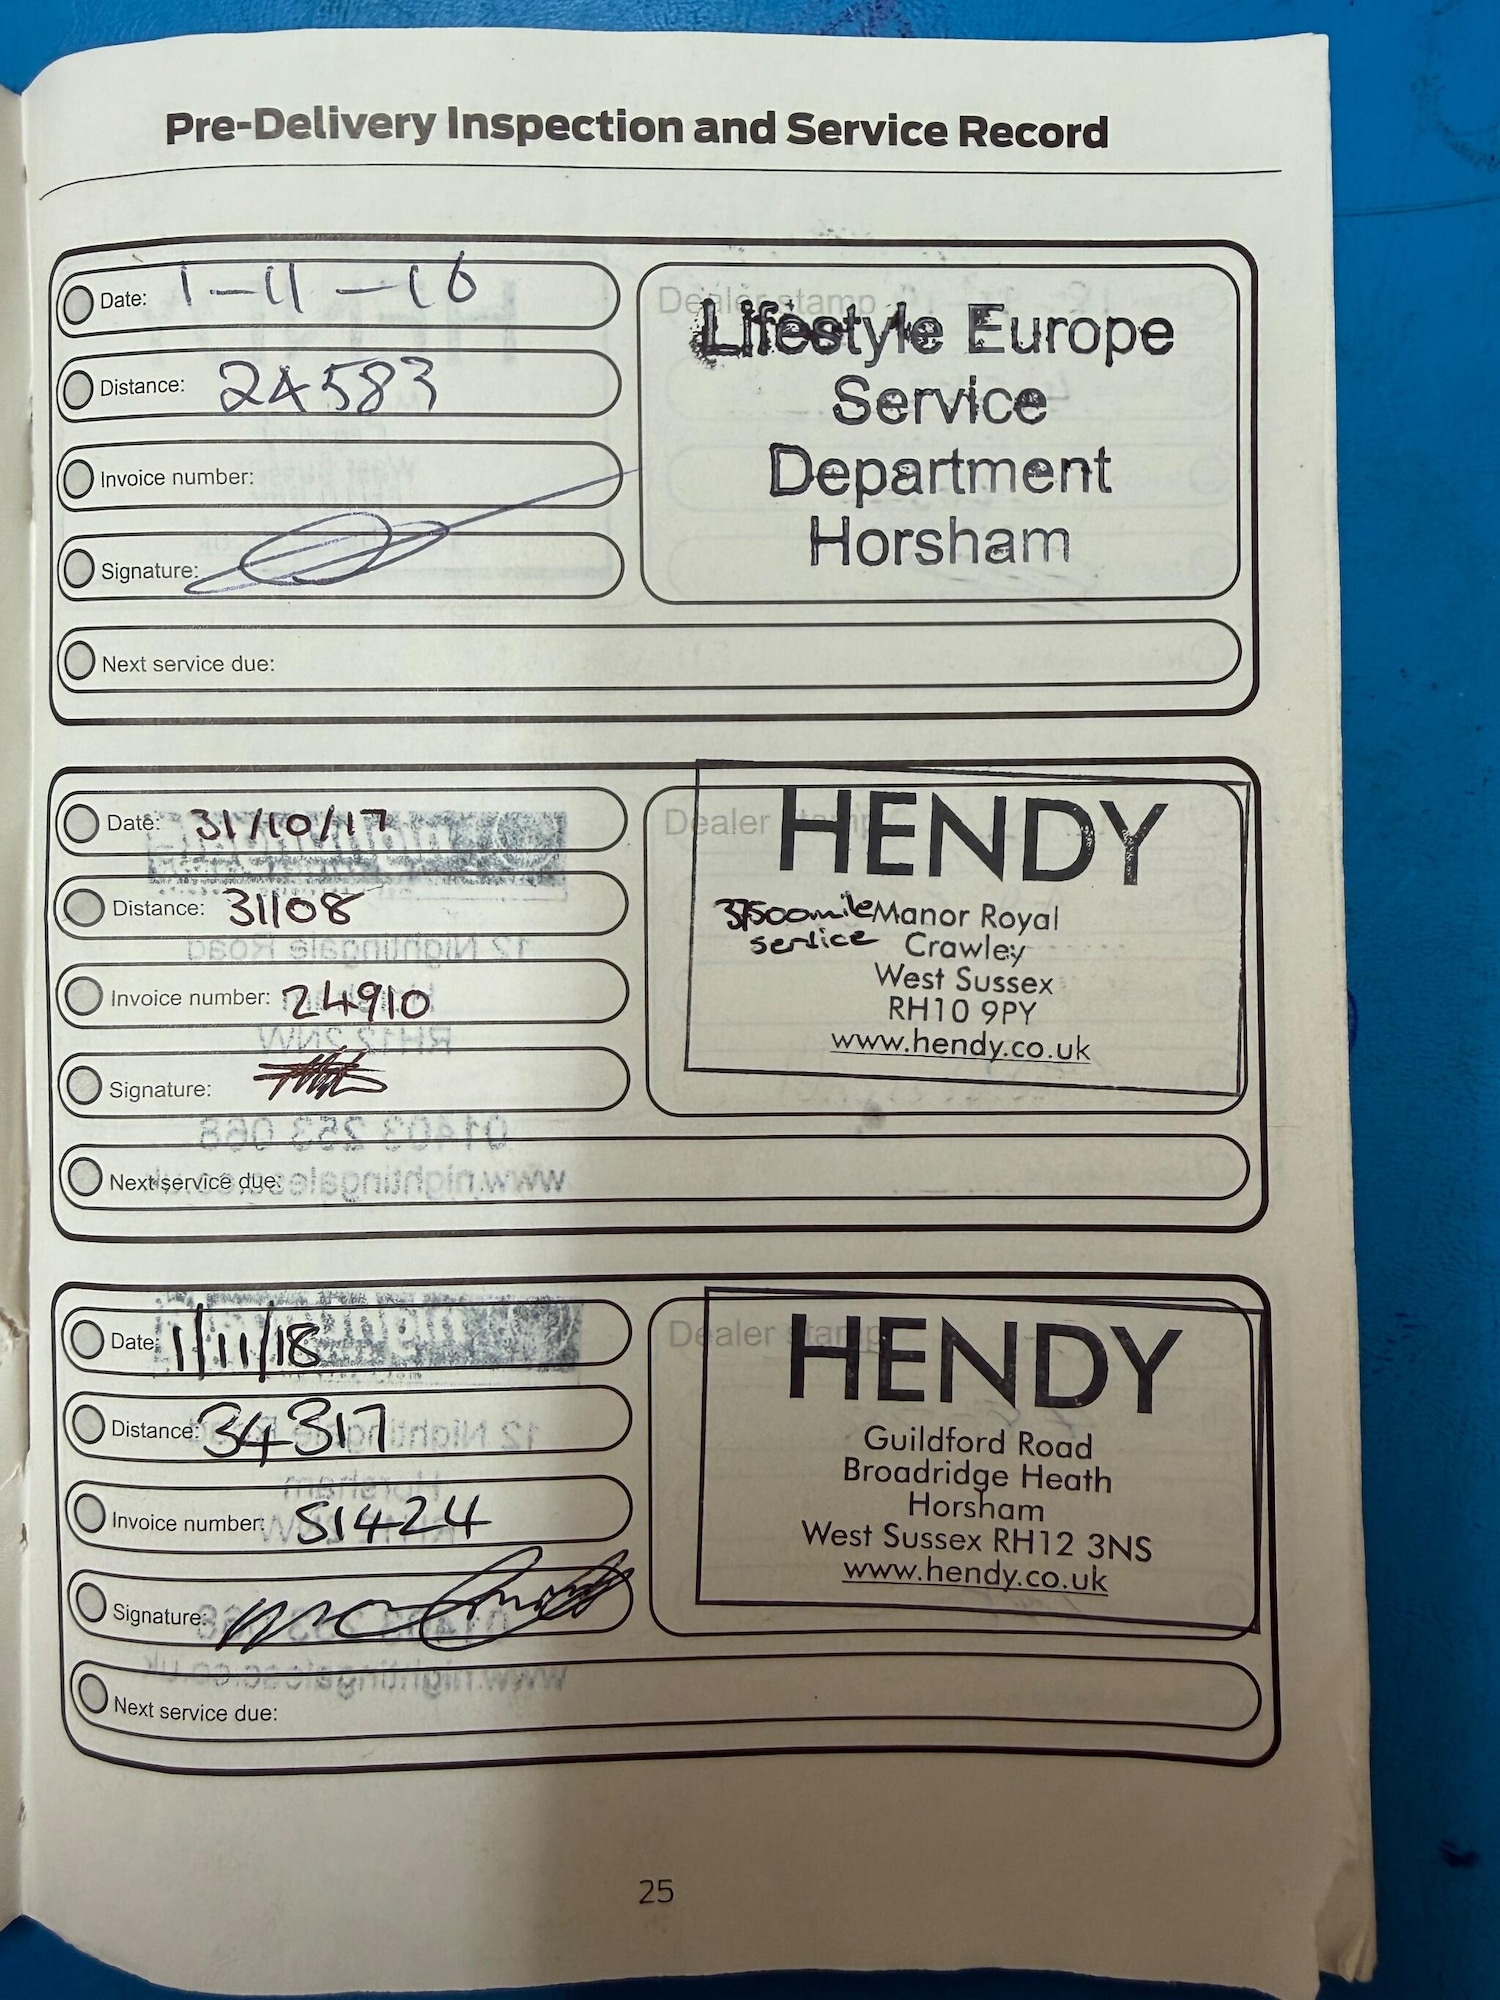 Pre-Delivery Inspection and Service Record
Date: 1-11-16
Distance: 24583
Invoice number:
Signature:
Next service due:
Dealer stamp
Lifestyle Europe
Service
Department
Horsham
Date: 31/10/17
Distance: 31108
Invoice number: 24910
Signature:
Next service due:
Dealer stamp
HENDY
37500mile Manor Royal
service Crawley
West Sussex
RH10 9PY
www.hendy.co.uk
Date: 1/11/18
Distance: 34317
Invoice number: 51424
Signature:
Next service due:
Dealer stamp
HENDY
Guildford Road
Broadridge Heath
Horsham
West Sussex RH12 3NS
www.hendy.co.uk
25